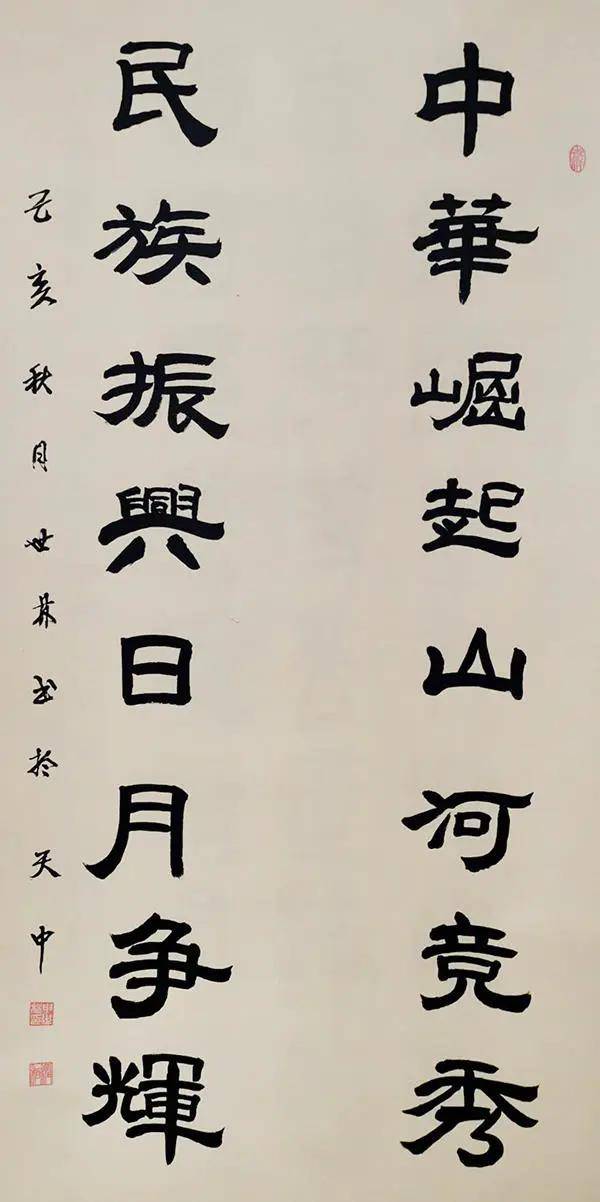 中華崛起山河竞秀
民族振興日月争輝
己亥秋月世界书於天中